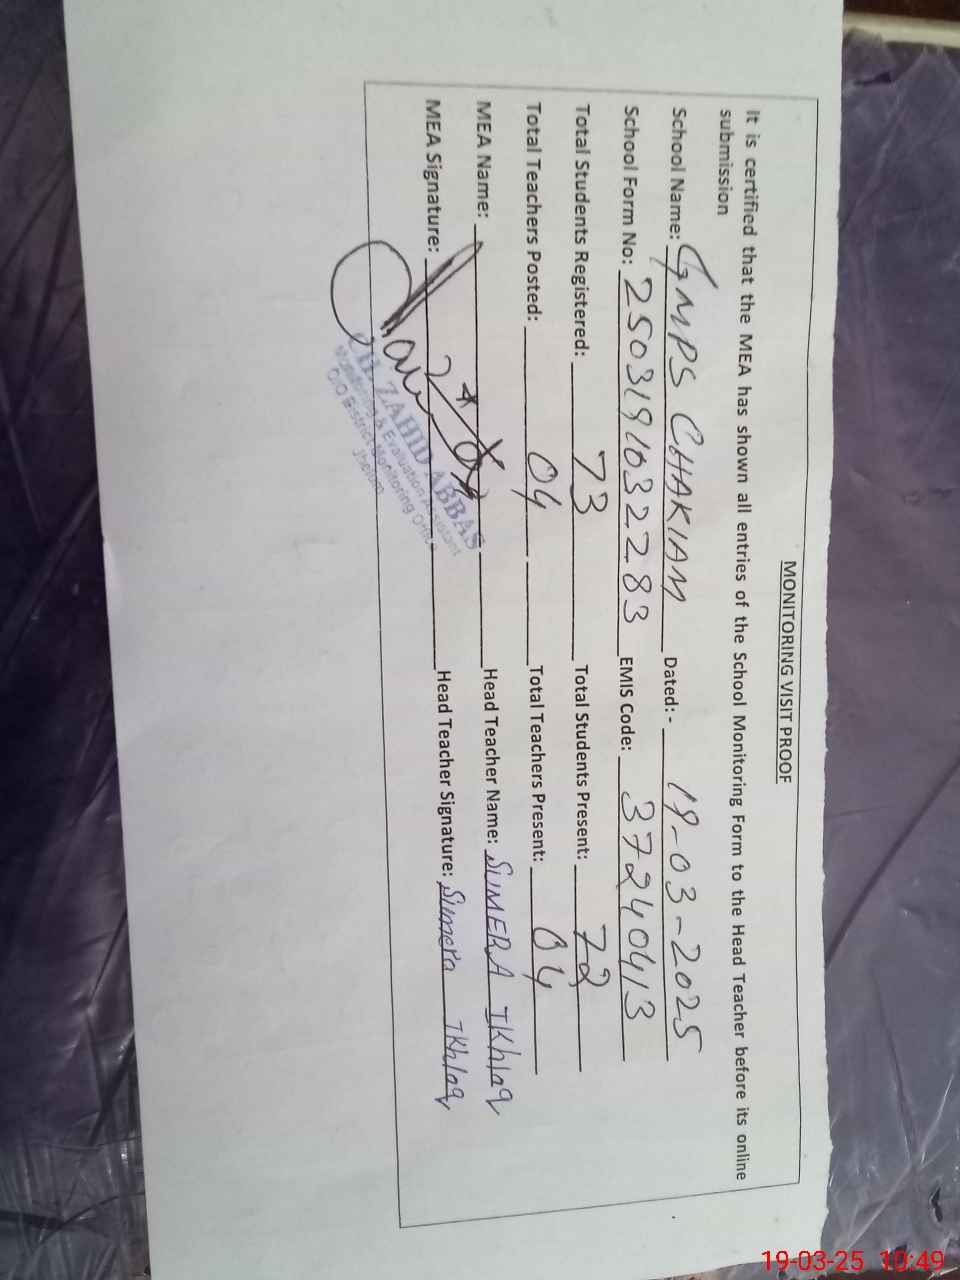 MONITORING VISIT PROOF
It is certified that the MEA has shown all entries of the School Monitoring Form to the Head Teacher before its online
submission
School Name: GMPS CHAKIAM Dated:- 19-03-2025
School Form No: 2503191032283 EMIS Code: 37240413
Total Students Registered: 73 Total Students Present: 72
Total Teachers Posted: 04 Total Teachers Present: 04
MEA Name: Head Teacher Name: SUMERA IKhlaq
MEA Signature: Head Teacher Signature: Sumera IKhlaq
ZAHID ABBAS
Monitoring & Evaluation Assistant
O/O District Monitoring Office
Jhelum
19-03-25 10:49